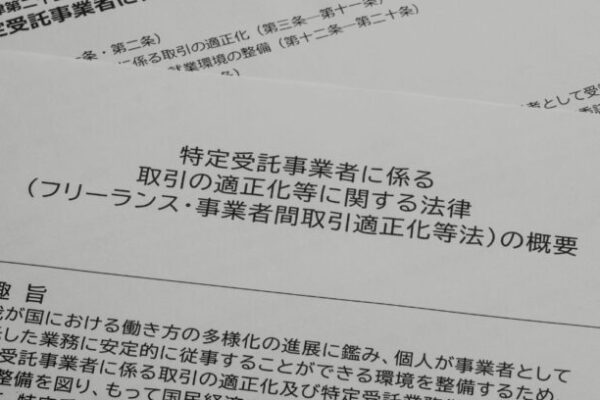 定受託事業者に
条・第二条)
に係る取引の適正化(第三条―第十一条)
就業環境の整備(第十二条―第二十条)
者として受
特定受託事業者に係る
取引の適正化等に関する法律
(フリーランス・事業者間取引適正化等法)の概要
趣 旨
が国における働き方の多様化の進展に鑑み、個人が事業者として
した業務に安定的に従事することができる環境を整備するため
受託事業者に係る取引の適正化及び特定受託業務
整備を図り、もって国民経